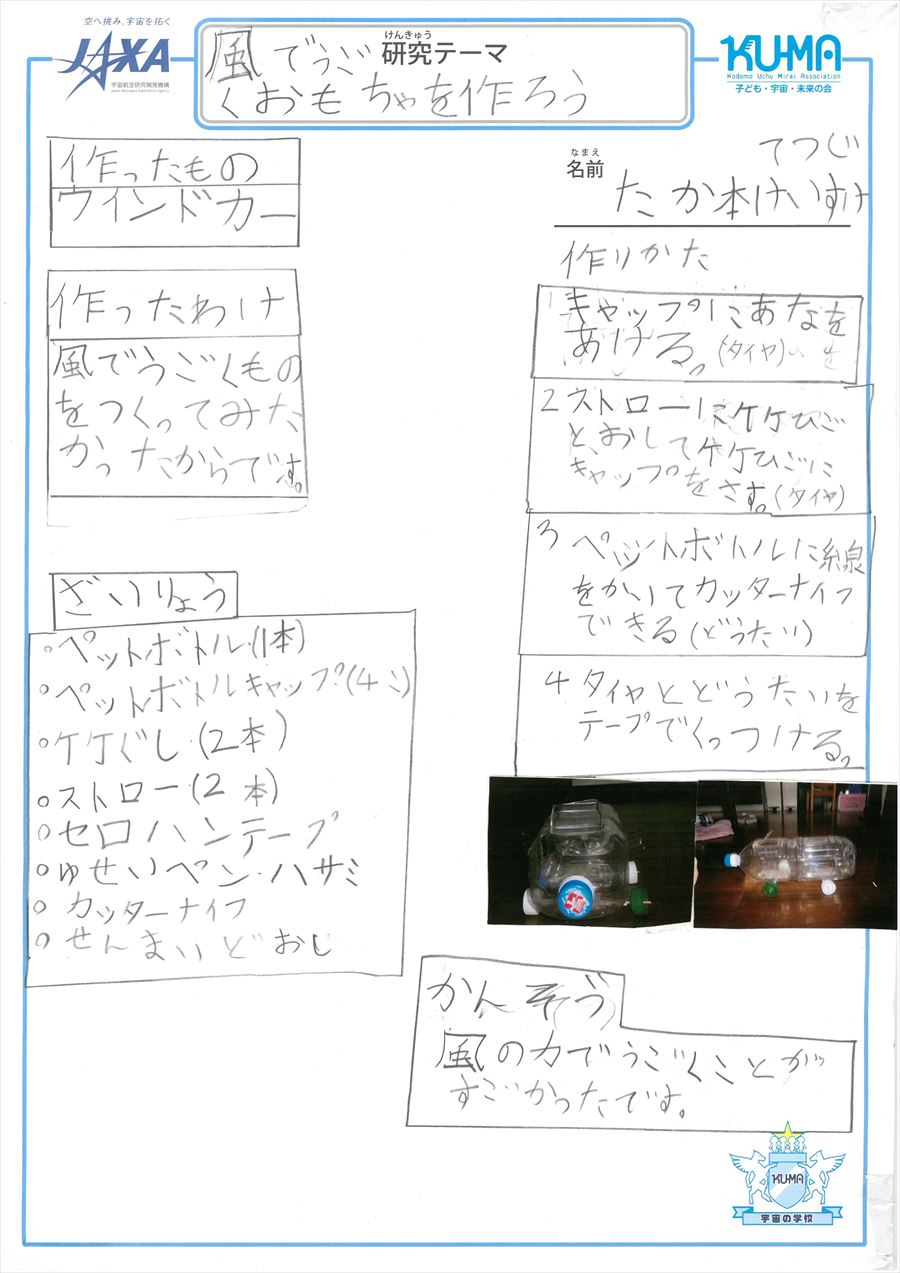 空へ挑み、宇宙を拓く
JAXA
宇宙航空研究開発機構
Japan Aerospace Exploration Agency
けんきゅう
研究テーマ
風でうご
くおもちゃを作ろう
KU-MA
Kodomo Uchu Mirai Association
子ども・宇宙・未来の会
なまえ
名前
てつじ
たか本けいすけ
作ったもの
ウィンドカー
作ったわけ
風でうごくもの
をつくってみた
かったからです。
ざいりょう
・ペットボトル(1本)
・ペットボトルキャップ(4こ)
・竹ぐし(2本)
・ストロー(2本)
・セロハンテープ
・ゆせいペン・ハサミ
・カッターナイフ
・せんまいどおし
作りかた
1 キャップにあなを
あける。(タイヤ)
2 ストローに竹ひご
と、おして竹ひごに
キャップをさす。(タイヤ)
3 ペットボトルに線
をかいてカッターナイフ
できる(どうたい)
4 タイヤとどうたいを
テープでくっつける。
かんそう
風の力でうごくことが
すごかったです。
KU-MA
宇宙の学校